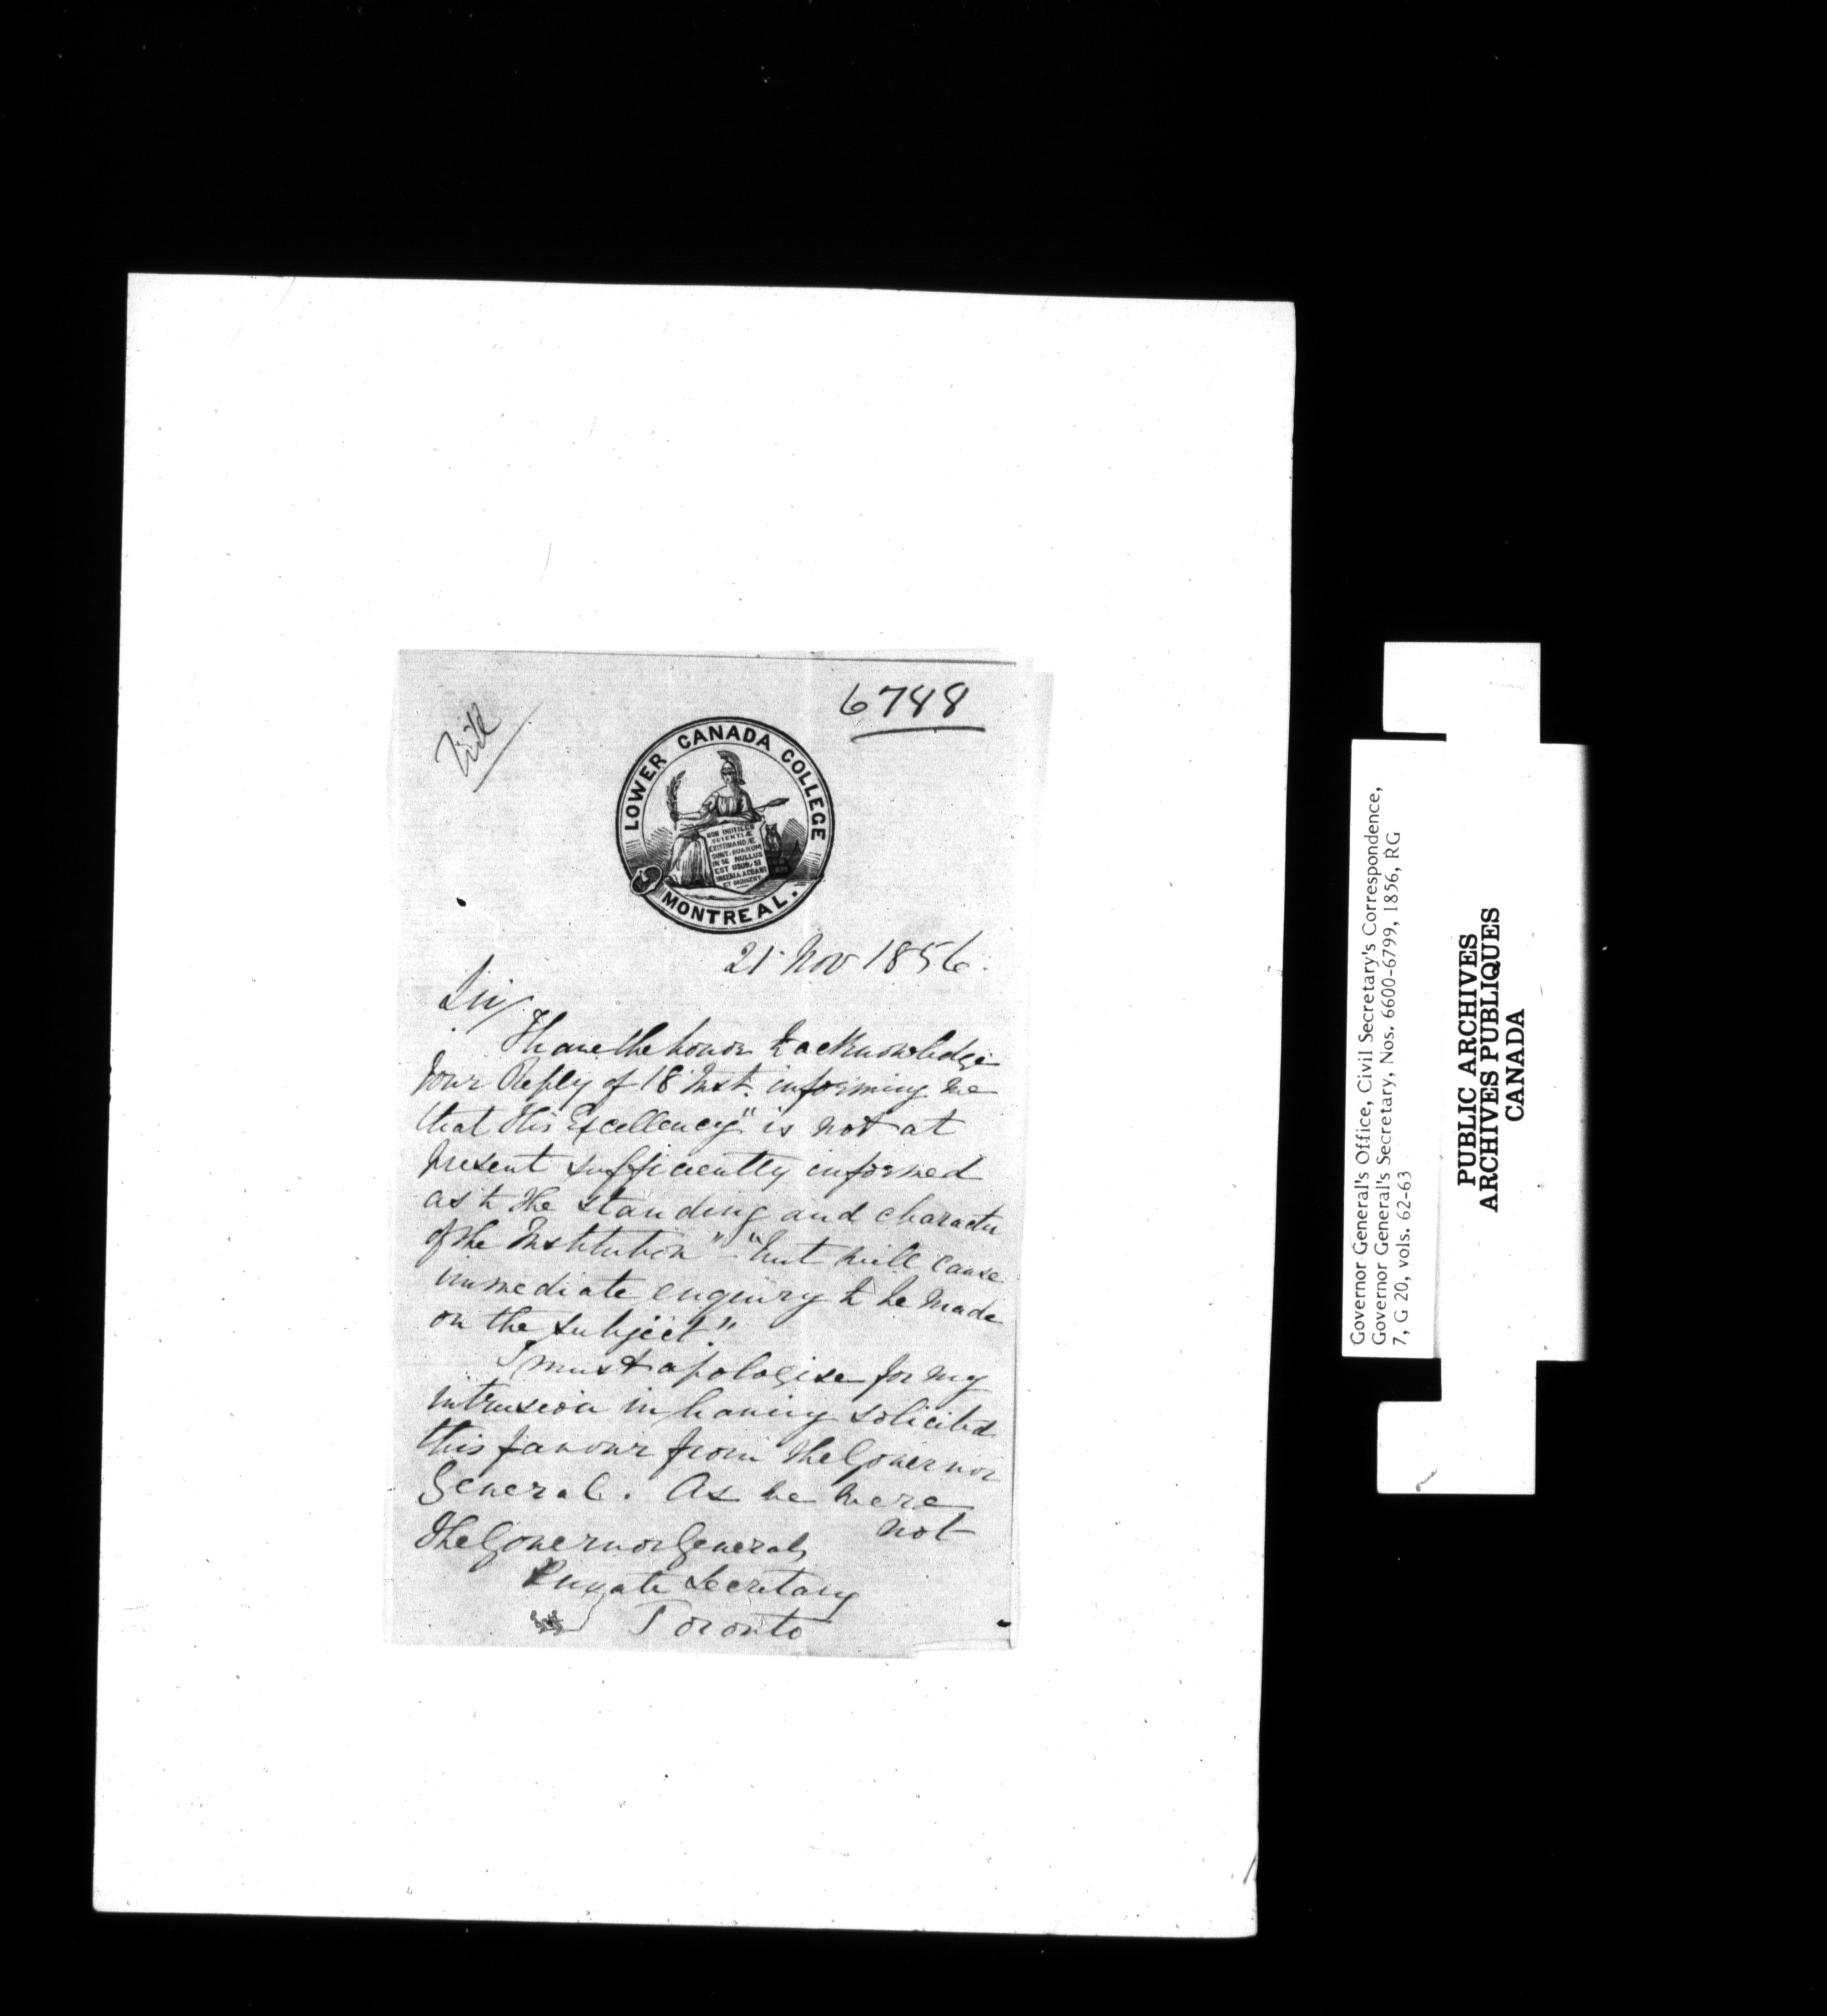 6788
LOWER CANADA COLLEGE
MONTREAL.
21 Nov 1856.
Sir,
I have the honor to acknowledge
your Reply of 18 Inst. informing me
that His Excellency "is not at
present sufficiently informed
as to the standing and character
of the Institution" "but will cause
immediate enquiry to be made
on the subject."
I must apologise for my
intrusion in having solicited
this favour from the Governor
General. As he were
not
The Governor Generals
Private Secretary
Toronto
Governor General's Office, Civil Secretary's Correspondence,
Governor General's Secretary, Nos. 6600-6799, 1856, RG
7, G 20, vols. 62-63
PUBLIC ARCHIVES
ARCHIVES PUBLIQUES
CANADA